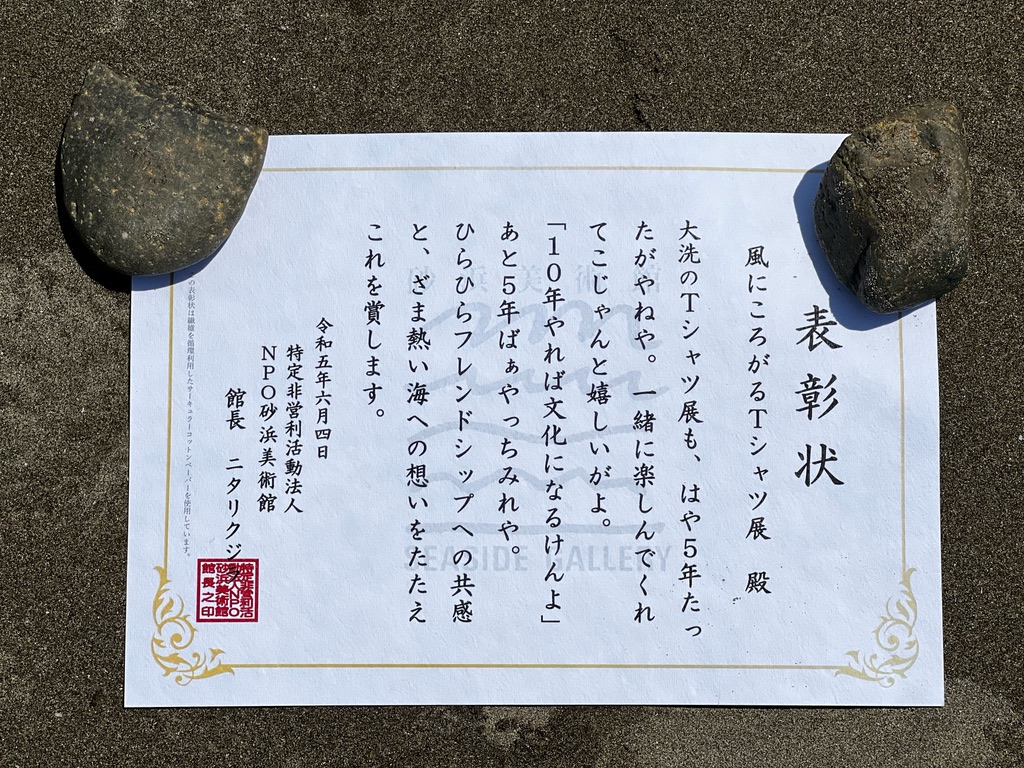 表彰状
風にころがるTシャツ展 殿
大洗のTシャツ展も、はや5年たっ
たがやねや。一緒に楽しんでくれ
てこじゃんと嬉しいがよ。
「10年やれば文化になるけんよ」
あと5年ばぁやっちみれや。
ひらひらフレンドシップへの共感
と、ざま熱い海への想いをたたえ
これを賞します。
令和五年六月四日
特定非営利活動法人
NPO砂浜美術館
館長 ニタリクジラ
特定非営利活
動法人NPO
砂浜美術館
館長之印
の表彰状は繊維を循環利用したサーキュラーコットンペーパーを使用しています。
砂浜美術館
SEASIDE GALLERY